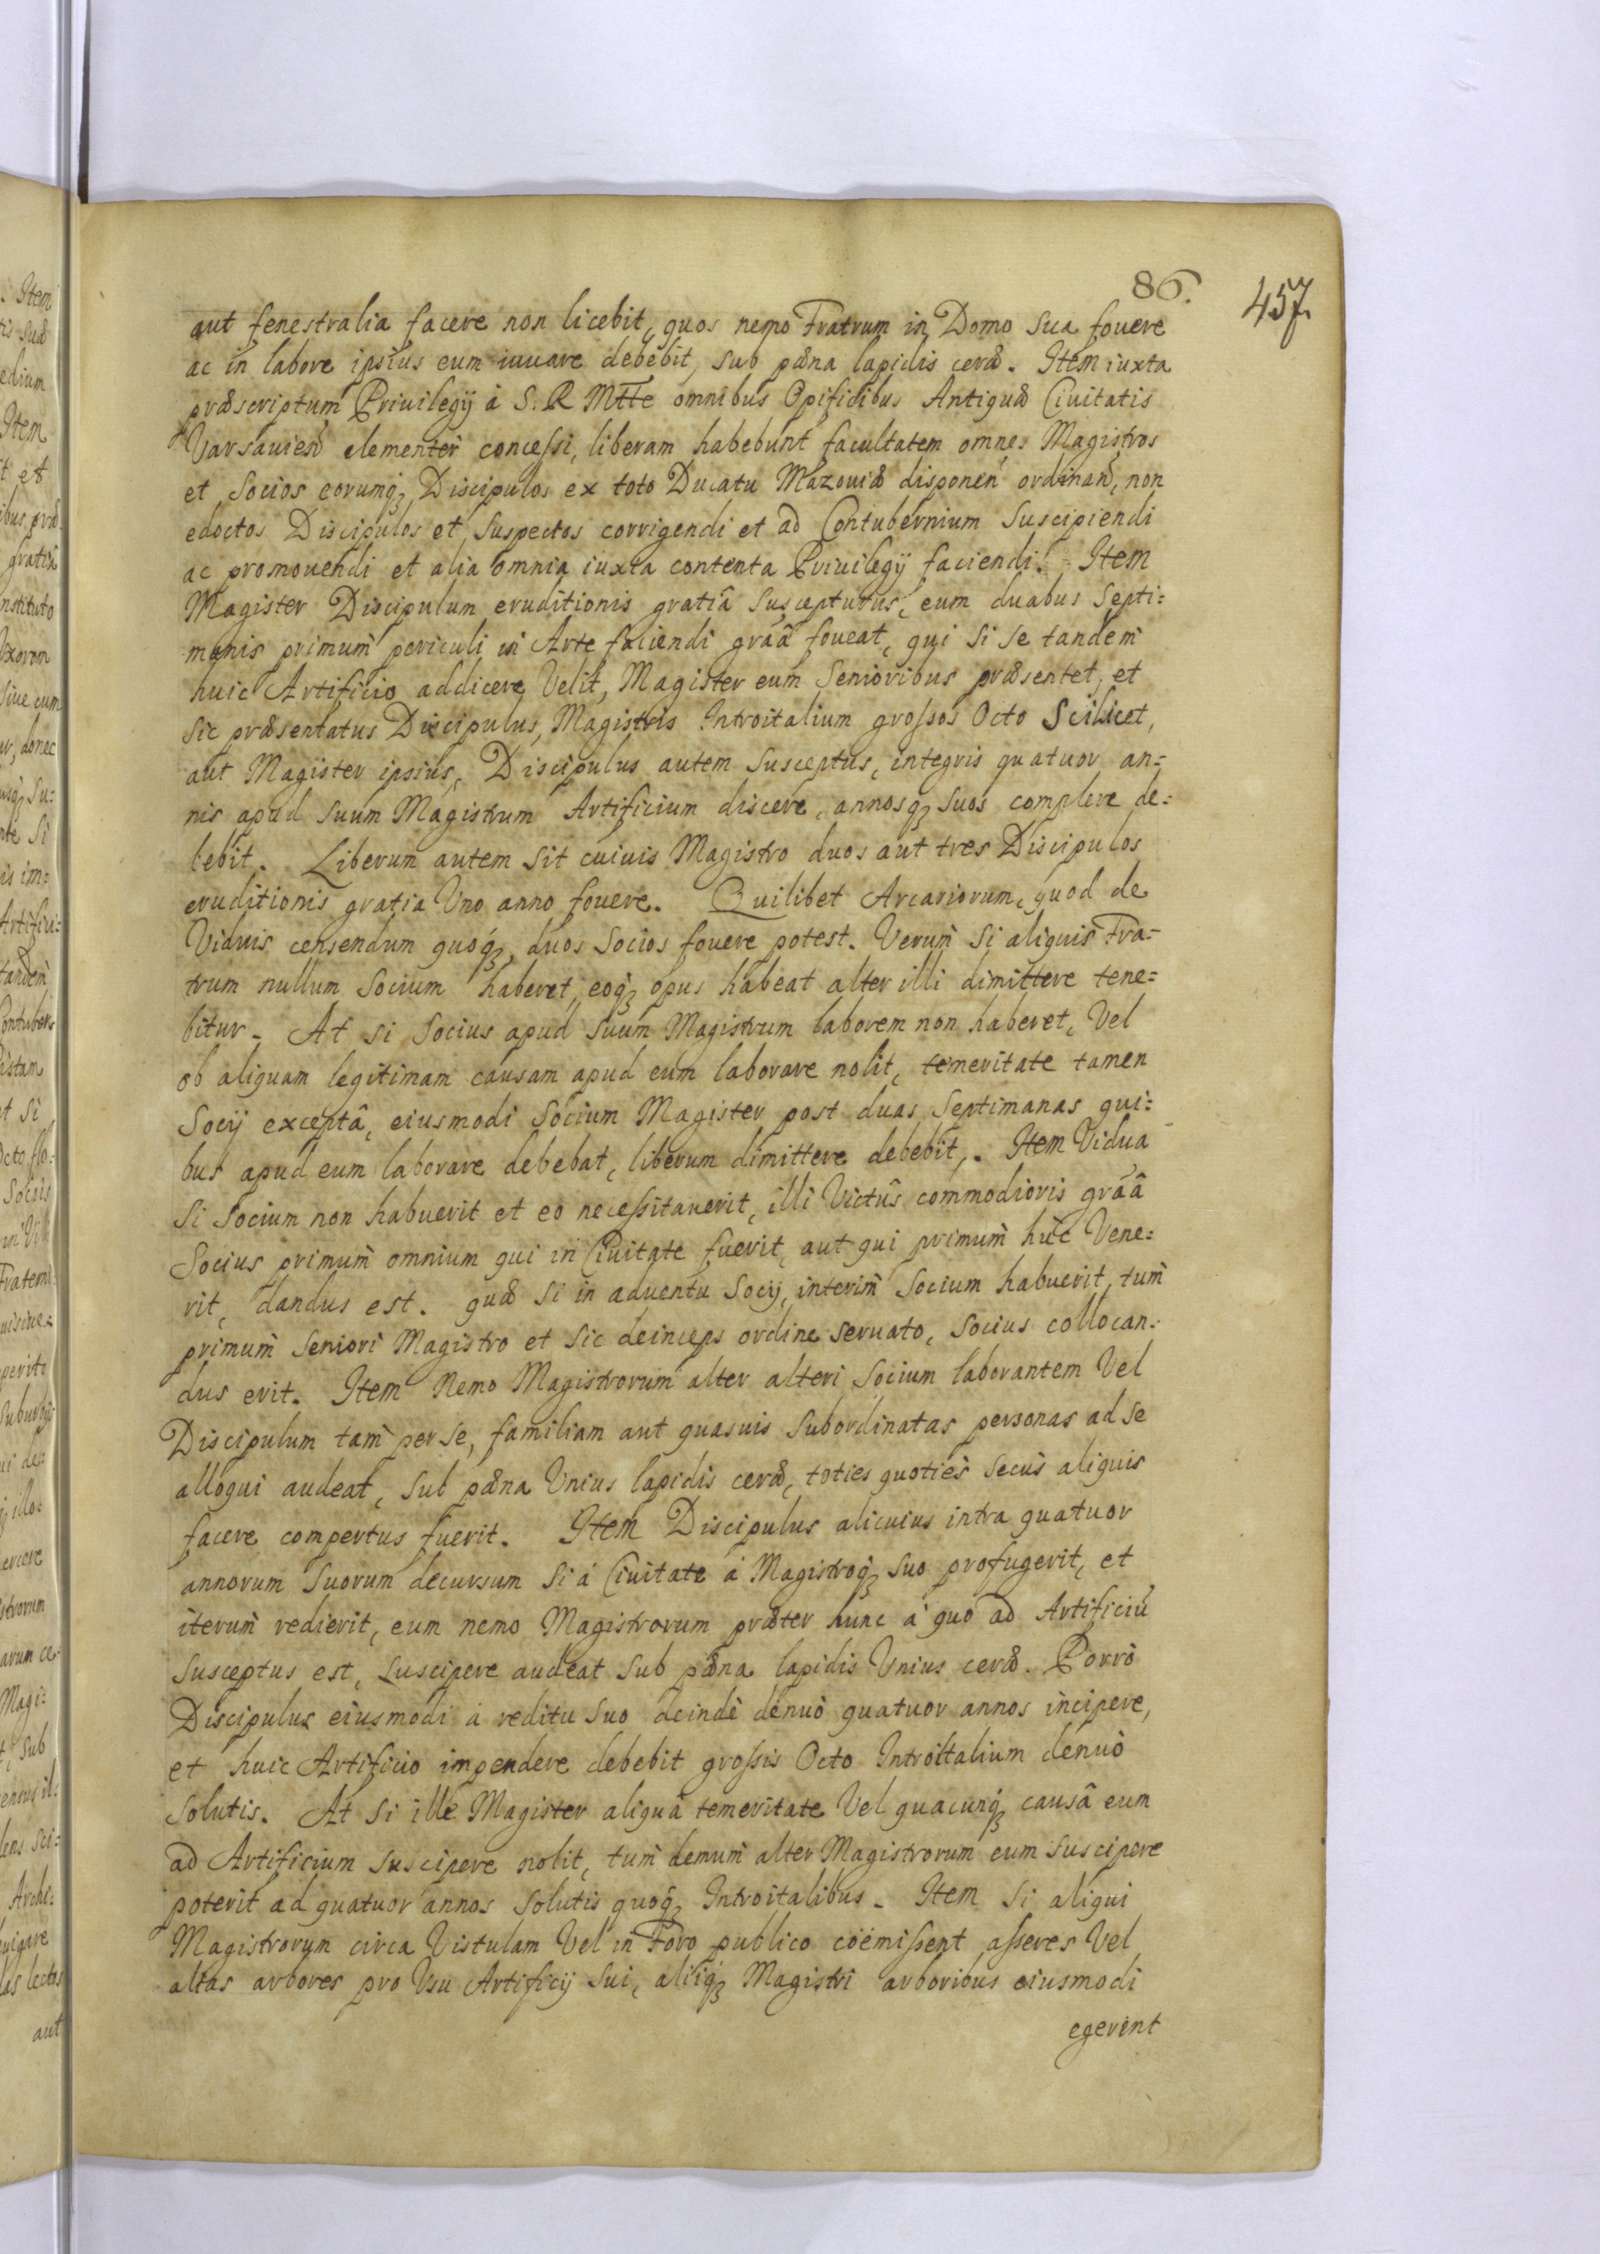 86.
457.
aut fenestralia facere non licebit, quos nemo Fratrum in Domo sua fovere
ac in labore ipsius eum iuvare debebit, sub pæna lapidis ceræ. Item iuxta
præscriptum Privilegij à S. R Mtte omnibus Opificibus Antiquæ Civitatis
Varsavien̄ clementer concessi, liberam habebunt facultatem omnes Magistros
et Socios eorumq̨ Discipulos ex toto Ducatu Mazoviæ disponen̄ ordinan̄, non
edoctos Discipulos et suspectos corrigendi et ad Contubernium suscipiendi
ac promovendi et alia omnia iuxta contenta Privilegij faciendi. Item
Magister Discipulum eruditionis gratiâ suscepturus, eum duabus Septi=
manis primum periculi in Arte faciendi grãâ foveat, qui si se tandem
huic Artificio addicere Velit, Magister eum Senioribus præsentet, et
sic præsentatus Discipulus, Magistris Introitalium grossos Octo Scilicet,
aut Magister ipsius, Discipulus autem susceptus, integris quatuor an=
nis apud suum Magistrum Artificium discere, annosq̨ suos complere de=
bebit. Liberum autem sit cuivis Magistro duos aut tres Discipulos
eruditionis gratia Uno anno fovere. Quilibet Arcariorum, quod de
Viduis censendum quoq̨, duos Socios fovere potest. Verum si aliquis Fra=
trum nullum Socium haberet, eoq̨ opus habeat alter illi dimittere tene=
bitur. At si Socius apud suum Magistrum laborem non haberet, Vel
ob aliquam legitimam causam apud eum laborare nolit, temeritate tamen
Socij exceptâ, eiusmodi Socium Magister post duas Septimanas qui=
bus apud eum laborare debebat, liberum dimittere debebit. Item Vidua
si Socium non habuerit et eo necessitaverit, illi Victûs commodioris grãâ
Socius primum omnium qui in Civitate fuerit, aut qui primum huc Vene=
rit, dandus est. quæ si in adventu Socij, interim Socium habuerit, tum
primum Seniori Magistro et sic deinceps ordine servato, Socius collocan=
dus erit. Item Nemo Magistrorum alter alteri Socium laborantem Vel
Discipulum tam per se, familiam aut quasvis subordinatas personas ad se
alloqui audeat, sub pæna Unius lapidis ceræ, toties quoties secus aliquis
facere compertus fuerit. Item Discipulus alicuius intra quatuor
annorum suorum decursum si à Civitate à Magistroq̨ suo profugerit, et
iterum redierit, eum nemo Magistrorum præter hunc à quo ad Artificiū
susceptus est, suscipere audeat sub pæna lapidis Unius ceræ. Porrò
Discipulus eiusmodi à reditu suo deindè denuò quatuor annos incipere,
et huic Artificio impendere debebit grossis Octo Introitalium denuò
solutis. At si ille Magister aliquâ temeritate Vel quacunq̨ causâ eum
ad Artificium suscipere nolit, tum demum alter Magistrorum eum suscipere
poterit ad quatuor annos solutis quoq̨ Introitalibus. Item si aliqui
Magistrorum circa Vistulam Vel in Foro publico coëmissent asseres Vel
altas arbores pro Usu Artificij sui, aliiq̨ Magistri arboribus eiusmodi
egerint